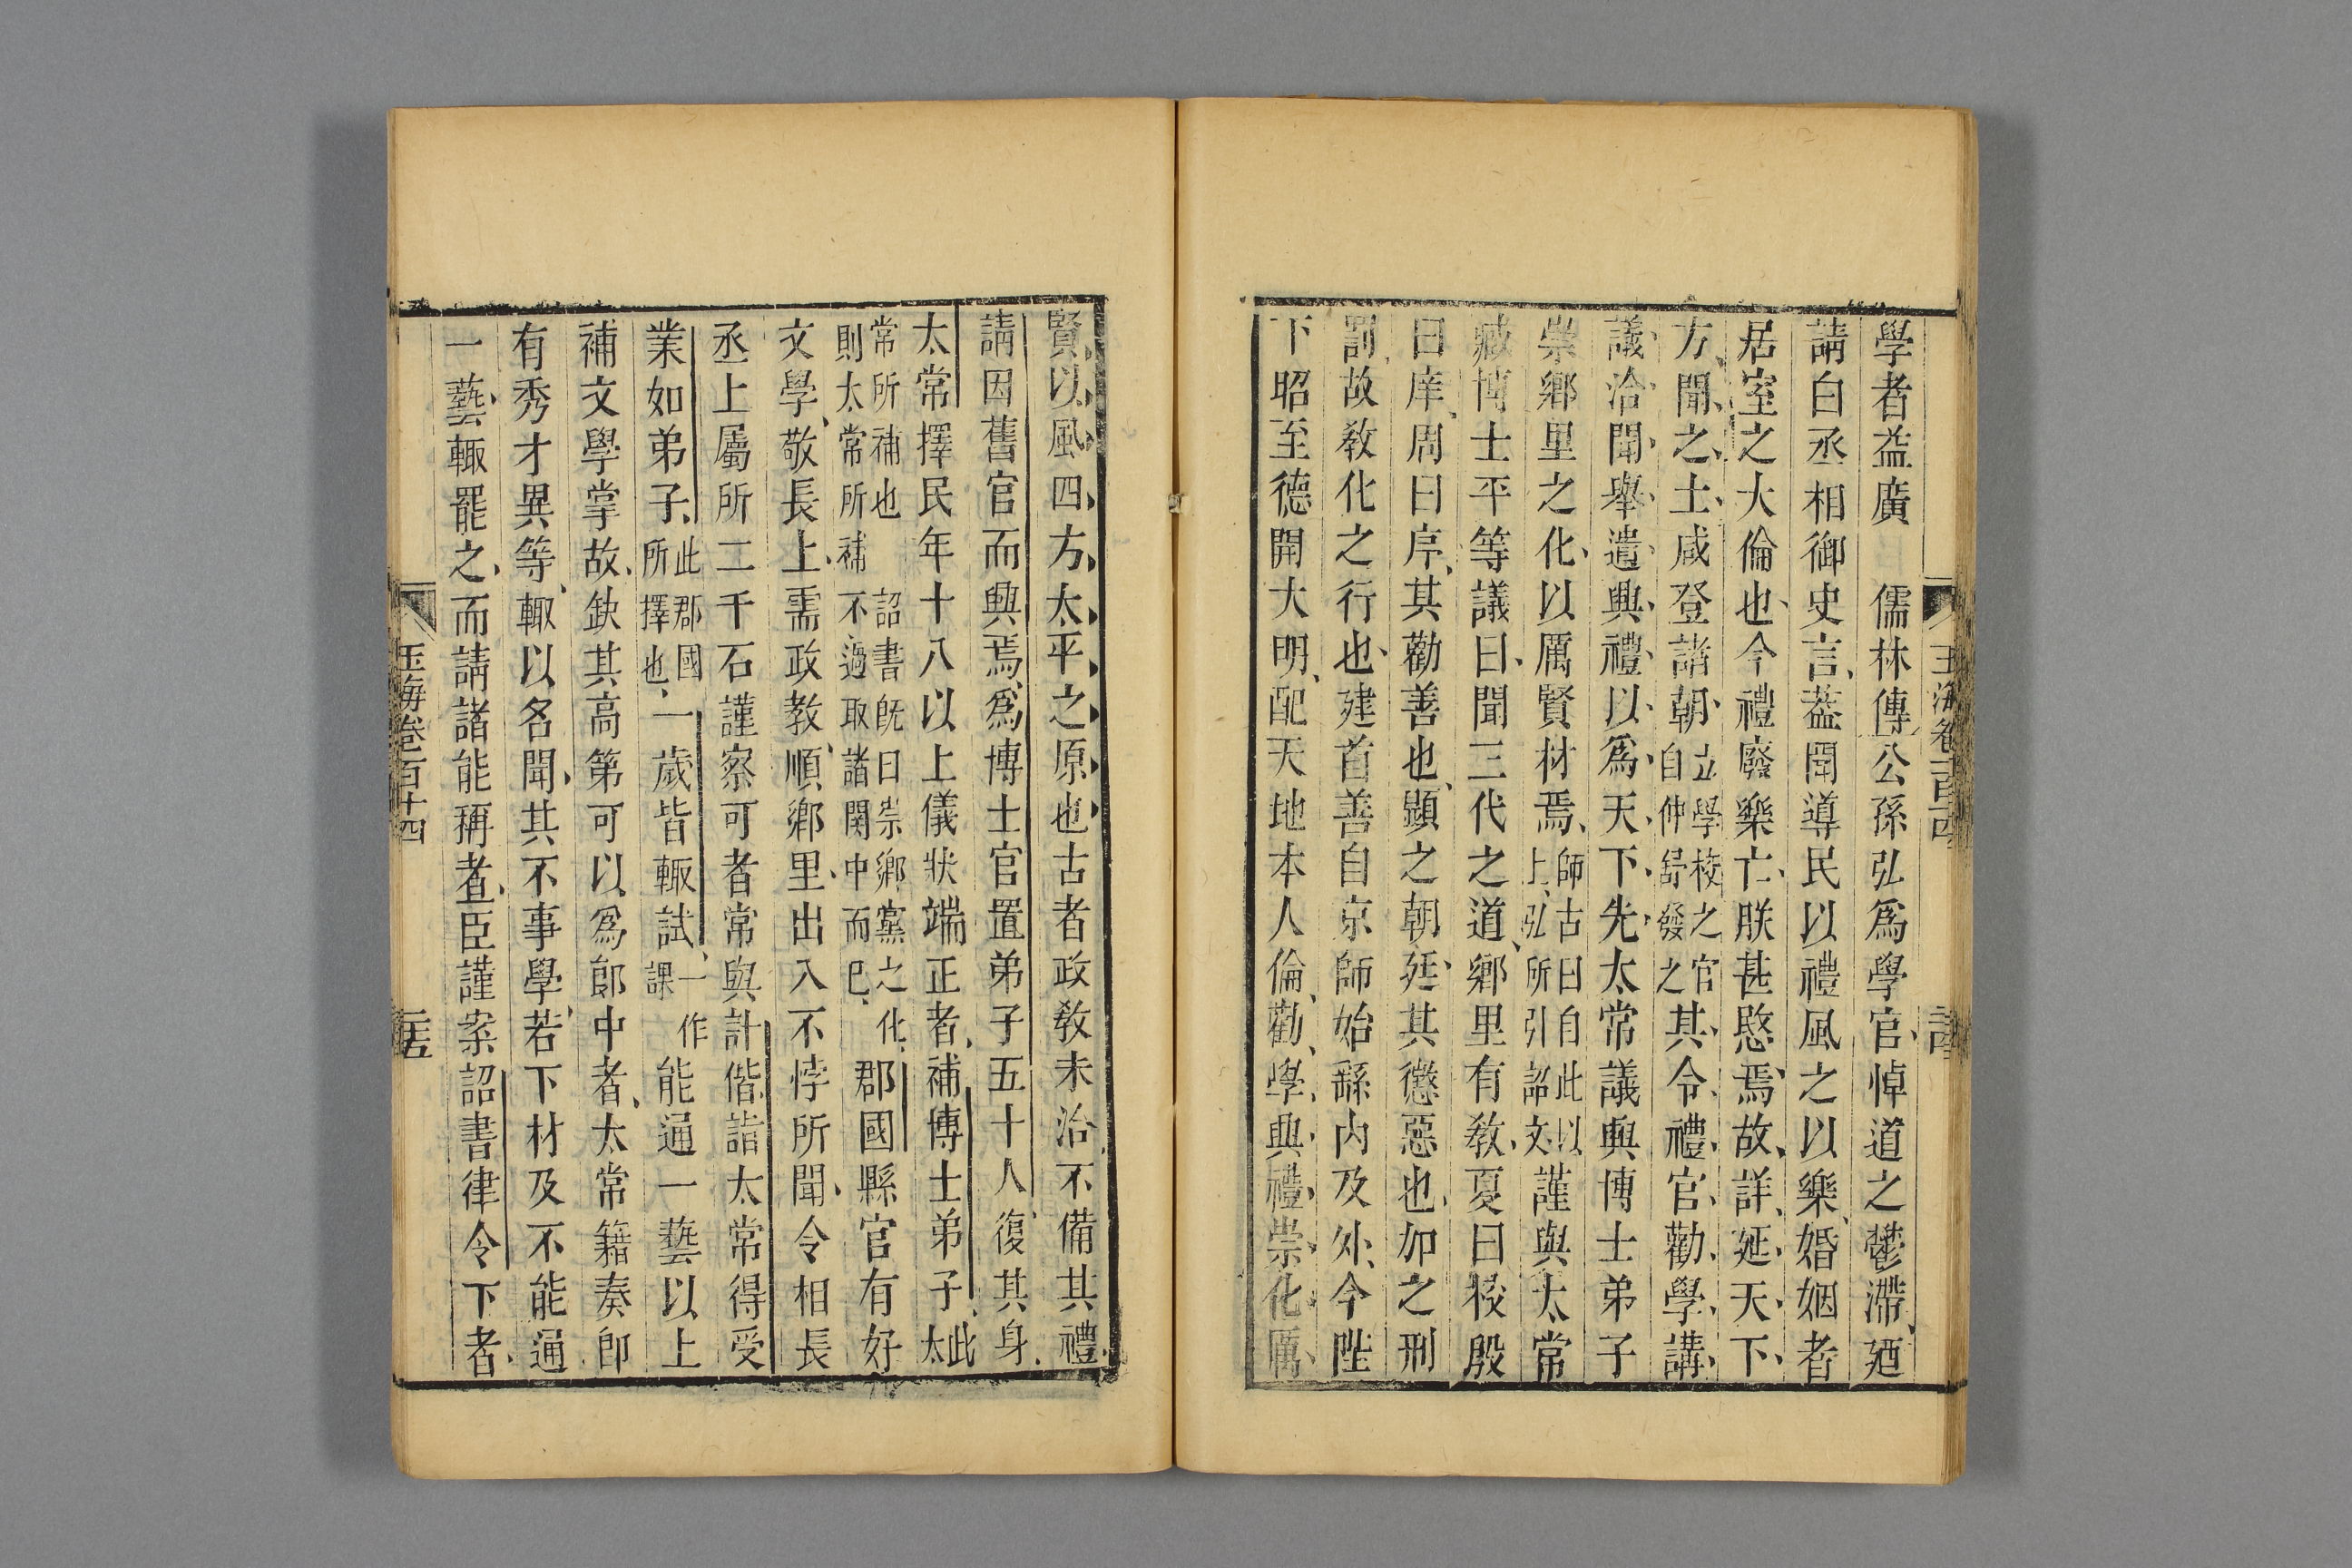 學者益廣　儒林傳公孫弘爲學官悼道之鬱滯廼
請白丞相御史言葢聞導民以禮風之以樂婚姻者
居室之大倫也今禮廢樂亡朕甚愍焉故詳延天下
方聞之士咸登諸朝立學校之官自仲舒發之其令禮官勸學講
議洽聞舉遺興禮以爲天下先太常議興博士弟子
崇鄉里之化以厲賢材焉師古曰自此以上弘所引詔文謹與太常
臧博士平等議曰聞三代之道鄉里有教夏曰校殷
曰庠周曰序其勸善也顯之朝廷其懲惡也加之刑
罰故敎化之行也建首善自京師始繇內及外今陛
下昭至德開大明配天地本人倫勸學興禮崇化厲
賢以風四方太平之原也古者政教未洽不備其禮
請因舊官而興焉爲博士官置弟子五十人復其身
太常擇民年十八以上儀狀端正者補博士弟子此太
常所補也　詔書旣曰崇鄉黨之化則太常所補不過取諸関中而已郡國縣官有好
文學敬長上肅政教順鄉里出入不悖所聞令相長
丞上屬所二千石謹察可者常與計偕詣太常得受
業如弟子此郡國所擇也一歲皆輙試一作課能通一藝以上
補文學掌故缺其高第可以爲郎中者太常籍奏卽
有秀才異等輙以名聞其不事學若下材及不能通
一藝輙罷之而請諸能稱者臣謹案詔書律令下者
玉海卷百十四